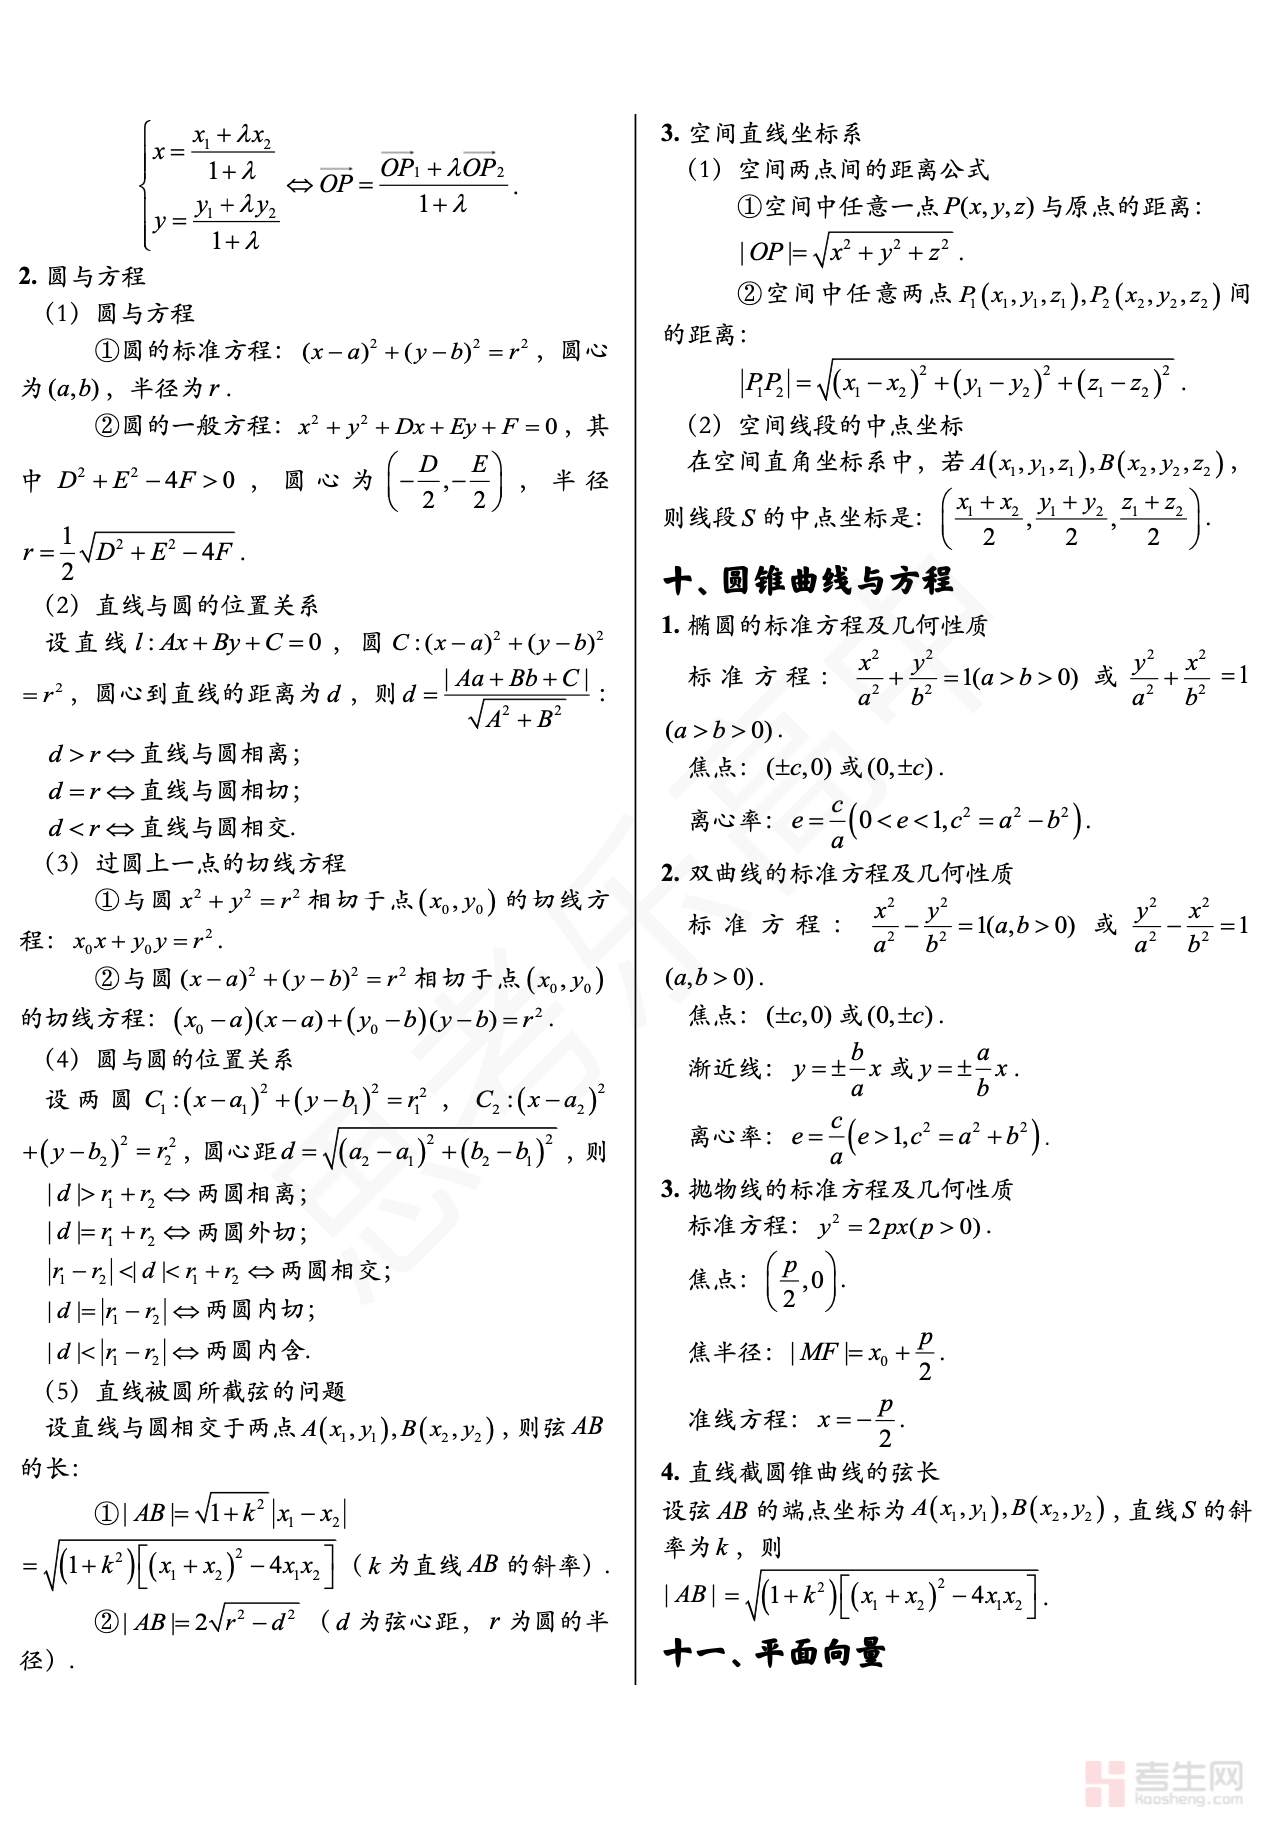 $\begin{cases} x=\dfrac{x_1+\lambda x_2}{1+\lambda} \\ y=\dfrac{y_1+\lambda y_2}{1+\lambda} \end{cases} \Leftrightarrow \overrightarrow{OP}=\dfrac{\overrightarrow{OP}_1+\lambda\overrightarrow{OP}_2}{1+\lambda}$ .
2. 圆与方程
（1）圆与方程
①圆的标准方程： $(x-a)^2+(y-b)^2=r^2$ ，圆心
为 $(a,b)$ ，半径为 $r$ .
②圆的一般方程： $x^2+y^2+Dx+Ey+F=0$ ，其
中 $D^2+E^2-4F>0$ ，圆心为 $\left(-\dfrac{D}{2},-\dfrac{E}{2}\right)$ ，半径
$r=\dfrac{1}{2}\sqrt{D^2+E^2-4F}$ .
（2）直线与圆的位置关系
设直线 $l:Ax+By+C=0$ ，圆 $C:(x-a)^2+(y-b)^2$
$=r^2$ ，圆心到直线的距离为 $d$ ，则 $d=\dfrac{|Aa+Bb+C|}{\sqrt{A^2+B^2}}$ ：
$d>r\Leftrightarrow$ 直线与圆相离；
$d=r\Leftrightarrow$ 直线与圆相切；
$d<r\Leftrightarrow$ 直线与圆相交.
（3）过圆上一点的切线方程
①与圆 $x^2+y^2=r^2$ 相切于点 $(x_0,y_0)$ 的切线方
程： $x_0x+y_0y=r^2$ .
②与圆 $(x-a)^2+(y-b)^2=r^2$ 相切于点 $(x_0,y_0)$
的切线方程： $(x_0-a)(x-a)+(y_0-b)(y-b)=r^2$ .
（4）圆与圆的位置关系
设两圆 $C_1:(x-a_1)^2+(y-b_1)^2=r_1^2$ ， $C_2:(x-a_2)^2$
$+(y-b_2)^2=r_2^2$ ，圆心距 $d=\sqrt{(a_2-a_1)^2+(b_2-b_1)^2}$ ，则
$|d|>r_1+r_2\Leftrightarrow$ 两圆相离；
$|d|=r_1+r_2\Leftrightarrow$ 两圆外切；
$|r_1-r_2|<|d|<r_1+r_2\Leftrightarrow$ 两圆相交；
$|d|=|r_1-r_2|\Leftrightarrow$ 两圆内切；
$|d|<|r_1-r_2|\Leftrightarrow$ 两圆内含.
（5）直线被圆所截弦的问题
设直线与圆相交于两点 $A(x_1,y_1),B(x_2,y_2)$ ，则弦 $AB$
的长：
① $|AB|=\sqrt{1+k^2}|x_1-x_2|$
$=\sqrt{(1+k^2)[(x_1+x_2)^2-4x_1x_2]}$ （ $k$ 为直线 $AB$ 的斜率）.
② $|AB|=2\sqrt{r^2-d^2}$ （ $d$ 为弦心距， $r$ 为圆的半
径）.
3. 空间直线坐标系
（1）空间两点间的距离公式
①空间中任意一点 $P(x,y,z)$ 与原点的距离：
$|OP|=\sqrt{x^2+y^2+z^2}$ .
②空间中任意两点 $P_1(x_1,y_1,z_1),P_2(x_2,y_2,z_2)$ 间
的距离：
$|P_1P_2|=\sqrt{(x_1-x_2)^2+(y_1-y_2)^2+(z_1-z_2)^2}$ .
（2）空间线段的中点坐标
在空间直角坐标系中，若 $A(x_1,y_1,z_1),B(x_2,y_2,z_2)$ ，
则线段 $S$ 的中点坐标是： $\left(\dfrac{x_1+x_2}{2},\dfrac{y_1+y_2}{2},\dfrac{z_1+z_2}{2}\right)$ .
十、圆锥曲线与方程
1. 椭圆的标准方程及几何性质
标准方程： $\dfrac{x^2}{a^2}+\dfrac{y^2}{b^2}=1(a>b>0)$ 或 $\dfrac{y^2}{a^2}+\dfrac{x^2}{b^2}=1$
$(a>b>0)$ .
焦点： $(\pm c,0)$ 或 $(0,\pm c)$ .
离心率： $e=\dfrac{c}{a}(0<e<1,c^2=a^2-b^2)$ .
2. 双曲线的标准方程及几何性质
标准方程： $\dfrac{x^2}{a^2}-\dfrac{y^2}{b^2}=1(a,b>0)$ 或 $\dfrac{y^2}{a^2}-\dfrac{x^2}{b^2}=1$
$(a,b>0)$ .
焦点： $(\pm c,0)$ 或 $(0,\pm c)$ .
渐近线： $y=\pm\dfrac{b}{a}x$ 或 $y=\pm\dfrac{a}{b}x$ .
离心率： $e=\dfrac{c}{a}(e>1,c^2=a^2+b^2)$ .
3. 抛物线的标准方程及几何性质
标准方程： $y^2=2px(p>0)$ .
焦点： $\left(\dfrac{p}{2},0\right)$ .
焦半径： $|MF|=x_0+\dfrac{p}{2}$ .
准线方程： $x=-\dfrac{p}{2}$ .
4. 直线截圆锥曲线的弦长
设弦 $AB$ 的端点坐标为 $A(x_1,y_1),B(x_2,y_2)$ ，直线 $S$ 的斜
率为 $k$ ，则
$|AB|=\sqrt{(1+k^2)[(x_1+x_2)^2-4x_1x_2]}$ .
十一、平面向量
思考乐高中
考生网
kaosheng.com